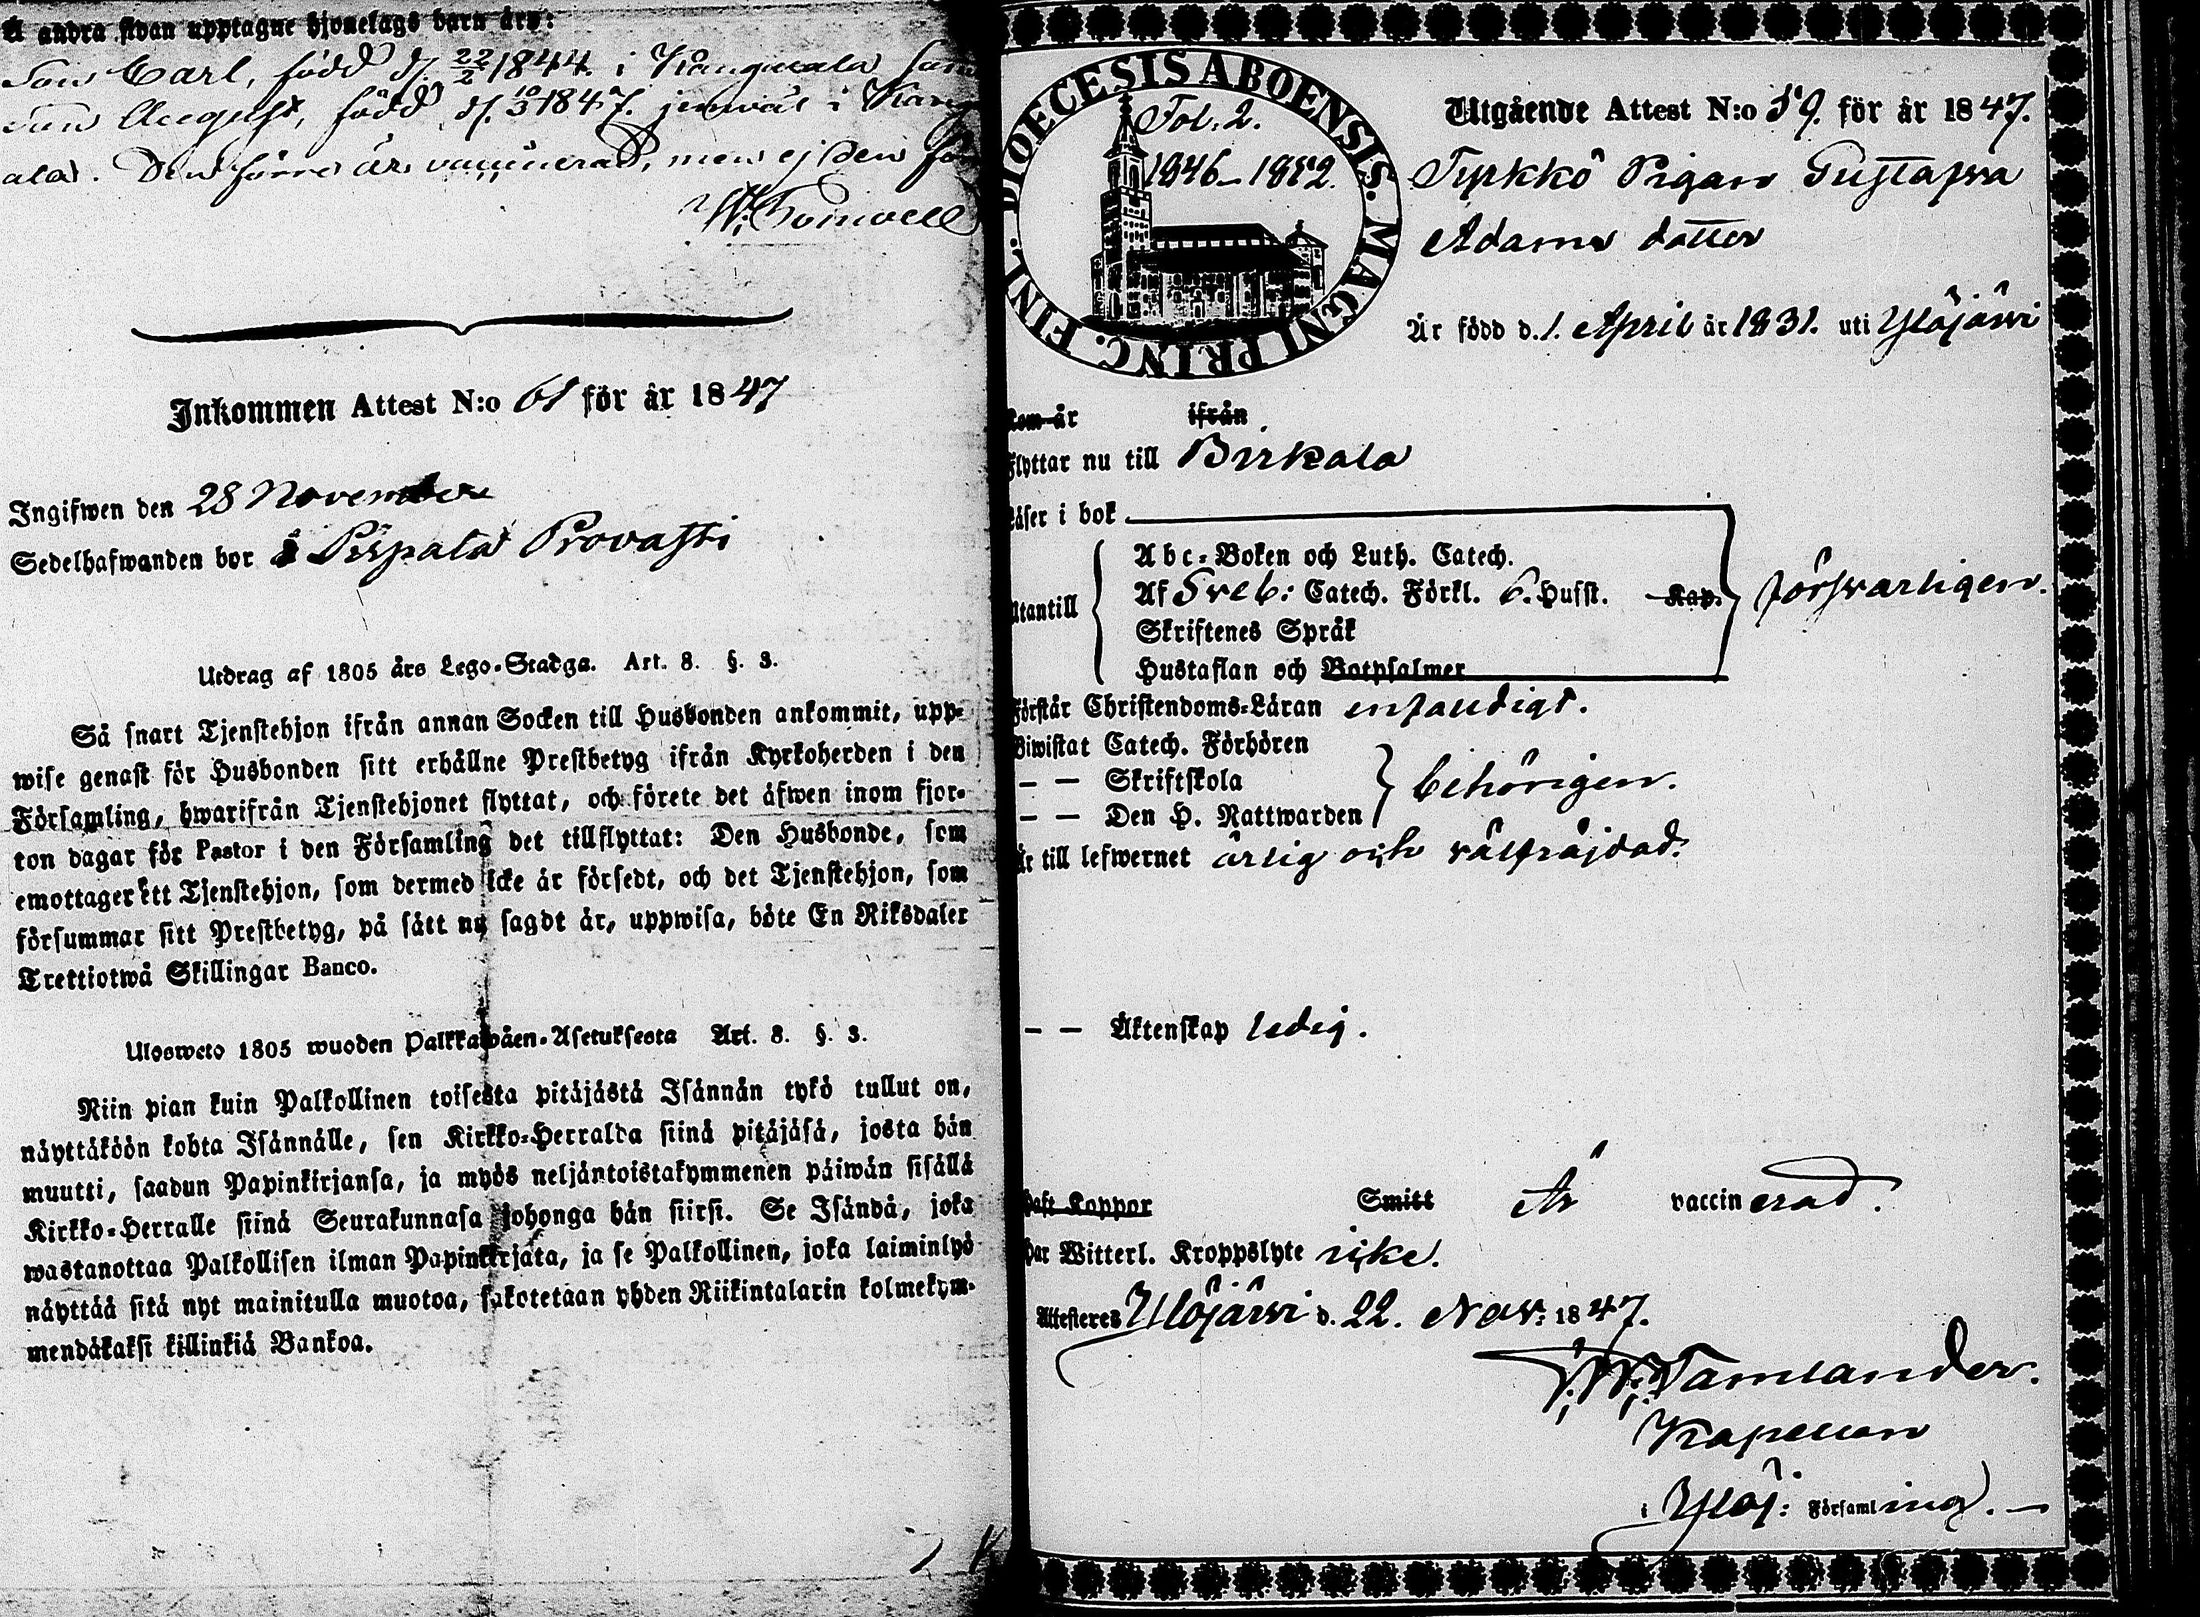 å andra sidan upptagne hjonelags barn äro:
Son Carl, född d. 22/2 1844. i Kangasala
Son August, född d. 10/3 1847. jemväl i Kang
ala. Den förre är vaccinerad, men ej den
Inkommen Attest N:o 61 för år 1847
Ingifwen den 28 November
Sedelhafwanden bor å Pispala Provasti
Utdrag af 1805 års Lego-Stadga. Art. 8. §. 3.
Så snart Tjenstehjon ifrån annan Socken till Husbonden ankommit, upp-
wise genast för Husbonden sitt erhållne Prestbetyg ifrån Kyrkoherden i den
Församling, hwarifrån Tjenstehjonet flyttat, och förete det äfwen inom fjor-
ton dagar för Pastor i den Församling det tillflyttat: Den Husbonde, som
emottager ett Tjenstehjon, som dermed icke är försedt, och det Tjenstehjon, som
försummar sitt Prestbetyg, på sätt nu sagdt är, uppwisa, böte En Riksdaler
Trettiotwå Skillingar Banco.
Ulosweto 1805 wuoden Palkkawäen-Asetuksesta Art. 8. §. 3.
Niin pian kuin Palkollinen toisesta pitäjästä Isännän tykö tullut on,
näyttäköön kohta Isännälle, sen Kirkko-Herralda siinä pitäjäsä, josta hän
muutti, saadun Papinkirjansa, ja myös neljäntoistakymmenen päiwän sisällä
Kirkko-Herralle siinä Seurakunnasa johonga hän siirsi. Se Isändä, joka
wastanottaa Palkollisen ilman Papinkirjata, ja se Palkollinen, joka laiminlyö
näyttää sitä nyt mainitulla muotoa, sakotetaan yhden Riikintalarin kolmekym-
mendäkaksi killinkiä Bankoa.
DIOECESIS ABOENSIS. MAGNI PRINC. FINL.
Fol. 2.
1846-1852.
Utgående Attest N:o 59. för år 1847.
Tyrkkö Pigan Gustafva
Adams dotter
Är född d. 1. April år 1831. uti Ylöjärvi
Kom år ifrån
Flyttar nu till Birkala
Läser i bok
Abc-Boken och Luth. Catech.
Utantill Af Sveb: Catech. Förkl. 6. Hufst. Kap. försvarligen.
Skriftenes Språk
Hustaflan och Botpsalmer
Förstår Christendoms-Läran enfaldigt.
Biwistat Catech. Förhören
— — Skriftskola behörigen.
— — Den H. Nattwarden
Är till lefwernet ärlig och välfräjdad.
— — Äktenskap ledig.
Haft Koppor Smitt Är vaccinerad.
Har Witterl. Kroppslyte icke.
Attesteres Ylöjärvi d. 22. Nov: 1847.
Tamlander.
Kapellan
i Ylöj: Församling. —